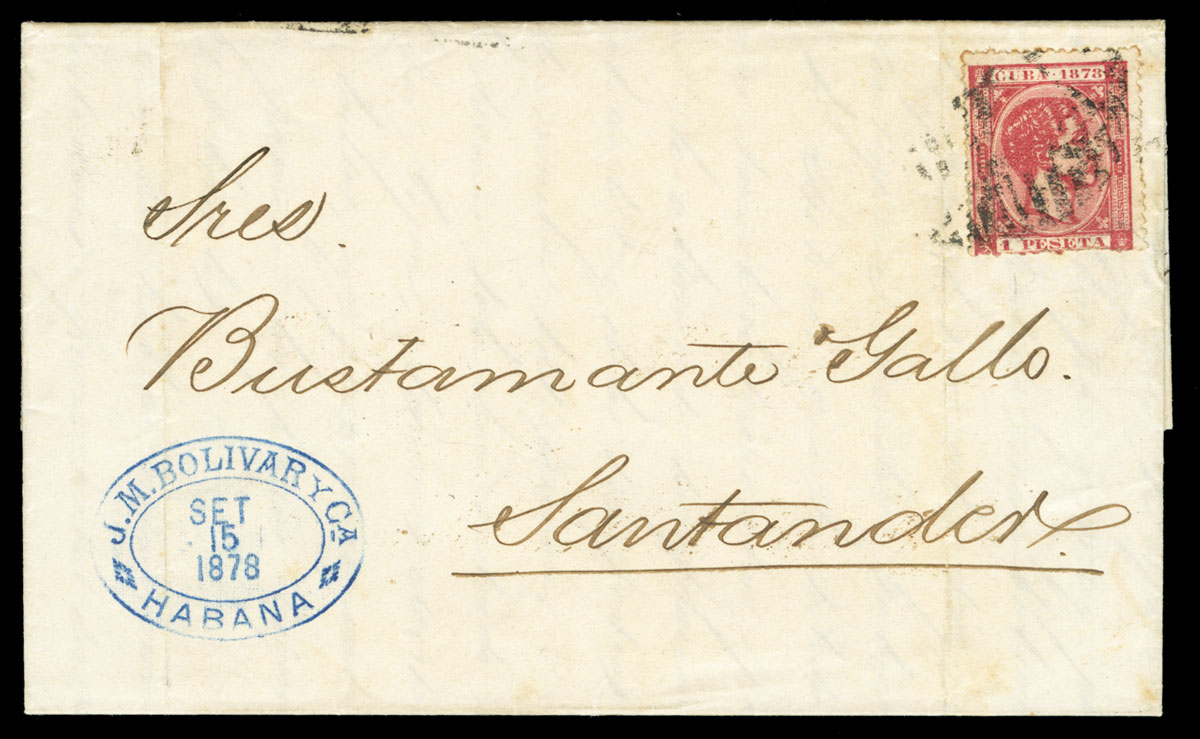 CUBA·1878
1 PESETA
Sres.
Bustamante Gallo.
Santander
J. M. BOLIVAR Y CA
SET
15
1878
HABANA